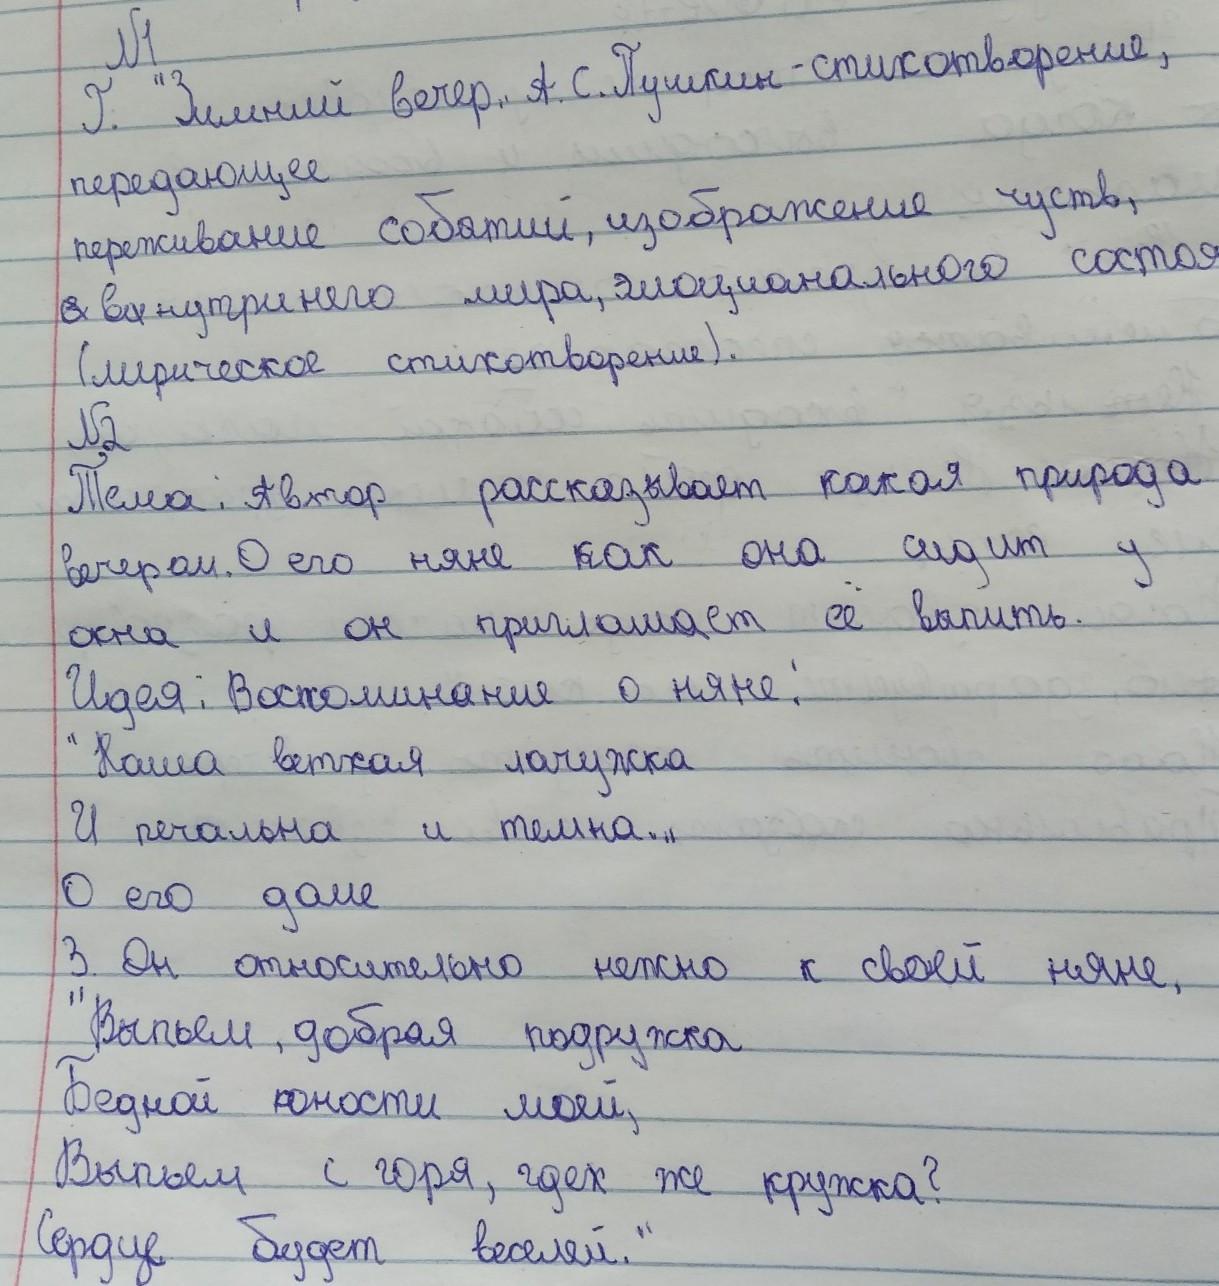 №1
Г. "Зимний вечер„ А.С.Пушкин-стихотворение,
передающее
переживание событий, изображение чуств,
внутринего мира, эмоционального состоя
(лирическое стихотворение).
№2
Тема: Автор рассказывает какая природа
вечером. О его няне как она сидит у
окна и он приглашает её выпить.
Идея: Воспоминание о няне:
"Наша ветхая лачужка
И печальна и темна...„
О его доме
3. Он относительно нежно к своей няне,
"Выпьем, добрая подружка
Бедной юности моей,
Выпьем с горя, где же кружка?
Сердце будет веселей."